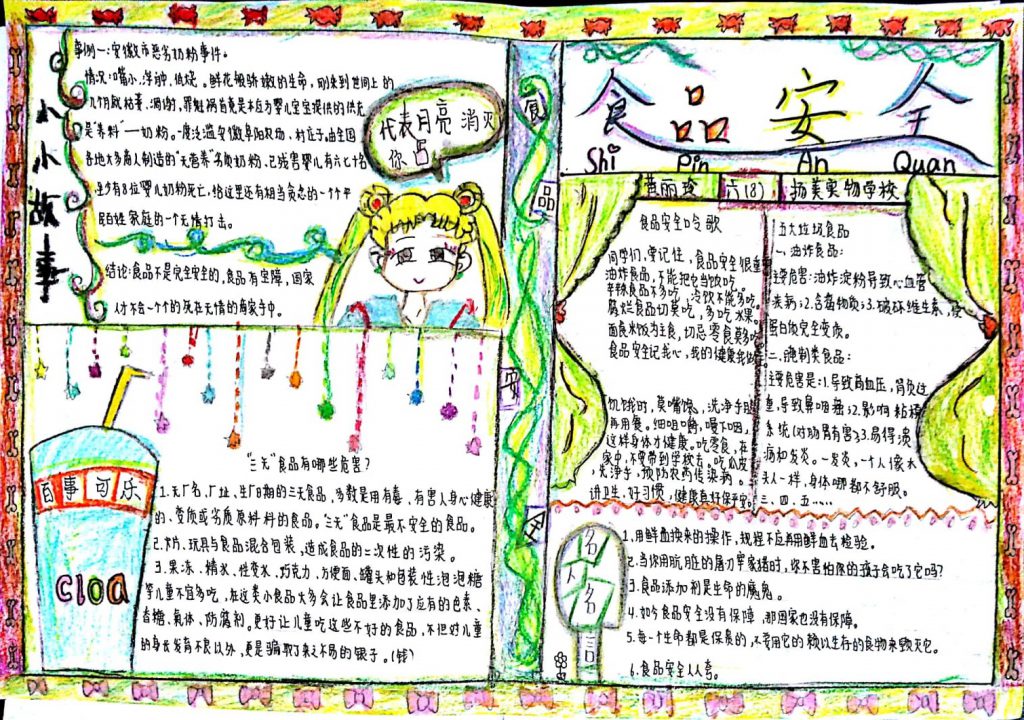 小故事
事例一:安徽市恶劣奶粉事件。
情况:嘴小、浮肿、低烧。鲜花般娇嫩的生命,刚来到世间上的
几个月就枯萎、凋谢,罪魁祸首竟是本应为婴儿宝宝提供的
是“养料”一奶粉。一度泛滥安徽阜阳农场,村庄子,由全国
各地大多商人制造的“无营养”劣质奶粉,已残害婴儿有六七十
至少有8位婴儿奶粉死亡,给这里还有相当负态的一个个平
民百姓家庭的一个无情打击。
结论:食品不是完全安全的,食品有宝障,国家
人才不会一个个的死在无情的商家手中。
代表月亮 消灭
你
“三无”食品有哪些危害?
1.无厂名、厂址、生厂日期的三无食品,多数是用有毒、有害人身心健康
的、变质或劣质原料料的食品。“三无”食品是最不安全的食品。
2.方、玩具与食品混合包装,造成食品的三次性的污染。
3.果冻、精水、性变水、巧克力、方便面、罐头和包装性泡泡糖
等儿童不宜多吃,在这类小食品大多会让食品里添加了应有的色素、
香糖、氧体、防腐剂。更好让儿童吃这些不好的食品,不但对儿童
的身长发育不良以外,更是骗取了来之不易的银子。(钱)
百事可乐
cloa
食
品
安
全
食品安全
Shi Pin An Quan
黄丽玲 六(8) 扬美实物学校
食品安全口令歌
同学们,要记性,食品安全很重
油炸食品,不能把它当饭吃。
辛辣食品不多吃,冷饮不能多吃。
腐烂食品切莫吃,多吃水果。
面食米饭为主食,切忌零食莫多吃
食品安全记我心,我的健康我做
饥饿时,莫嘴馋,洗净手
再用餐。细咀嚼,慢下咽,
这样身体才健康。吃零食,在
家中,不要带到学校去。吃瓜皮,
先净手,预防农药传染病。
讲卫生,好习惯,健康真好保平安。
五大垃圾食品
一、油炸食品:
主要危害:油炸淀粉导致心血管
疾病;2.含毒物质;3.破坏维生素,使
蛋白质完全变质。
二、腌制类食品:
主要危害是:1.导致高血压,肾负过
重,导致鼻咽癌;2.影响粘膜
系统(对肠胃有害);3.易得溃
疡和发炎。一发炎,一个人像木
夫一样,身体哪都不舒服。
三、四、五……
名人名言
1.用鲜血换来的操作,规程不应再用鲜血去检验。
2.当你用肮脏的屠刀宰家猪时,你不害怕你的孩子会吃了它吗?
3.食品添加剂是生命的魔鬼。
4.如今食品安全没有保障,那国家也没有保障。
5.每一个生命都是保贵的,不要用它的赖以生存的食物来毁灭它。
6.食品安全人人夸。